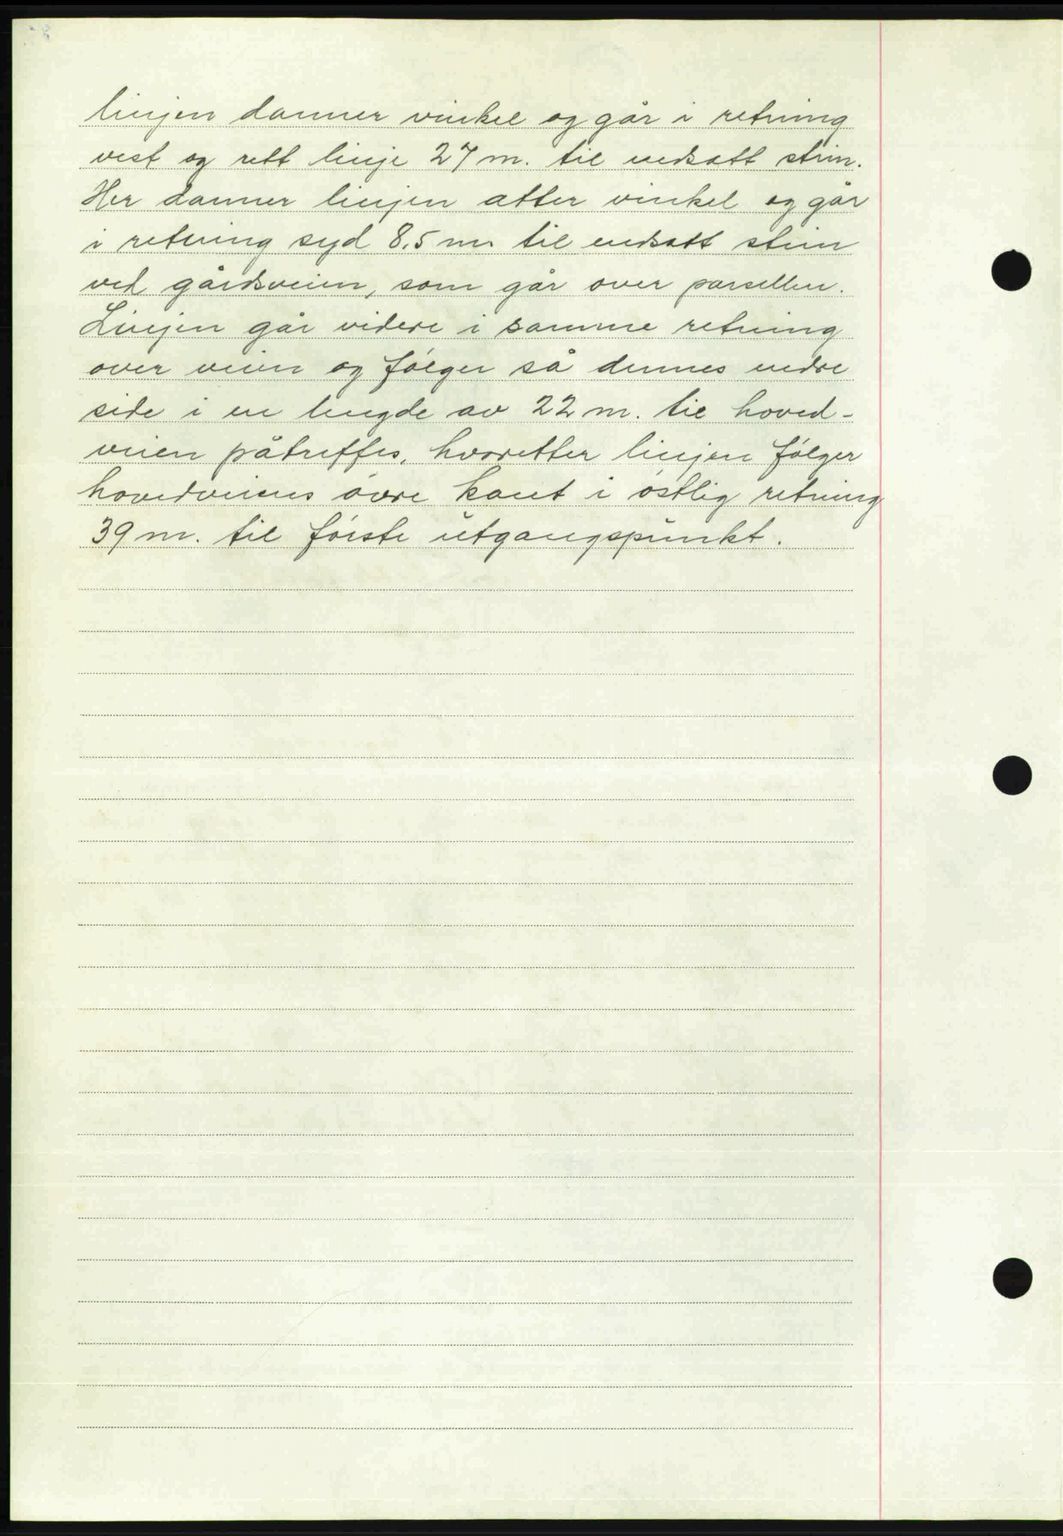 linjen danner vinkel og går i retning
vest og rett linje 27 m. til nedsatt stein.
Her danner linjen atter vinkel og går
i retning syd 8.5 m til nedsatt stein
ved gårdsveien, som går over parsellen.
Linjen går videre i samme retning
over veien og følger så dennes nedre
side i en lengde av 22 m. til hoved-
veien påtreffes, hvoretter linjen følger
hovedveiens øvre kant i østlig retning
39 m. til første utgangspunkt.